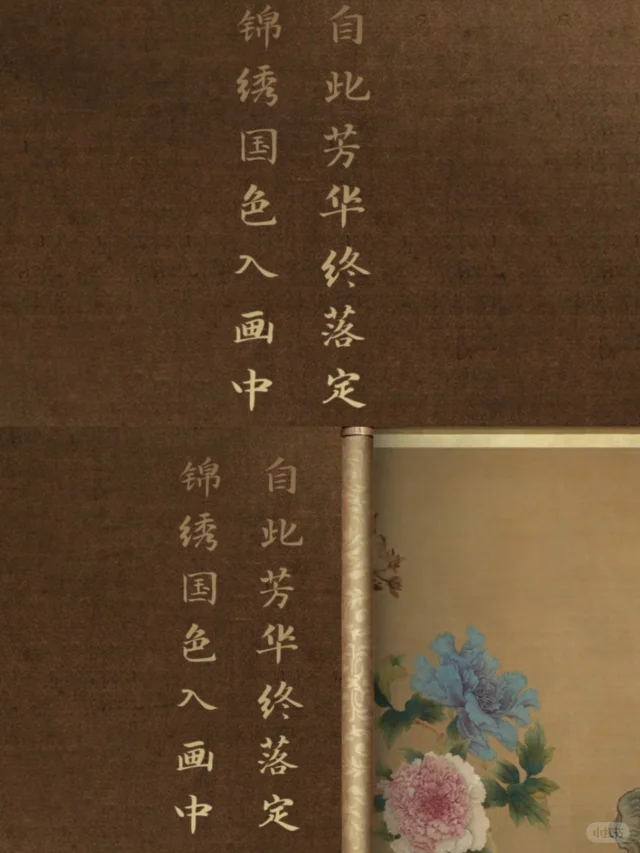 自此芳华终落定
锦绣国色入画中
自此芳华终落定
锦绣国色入画中
小红书